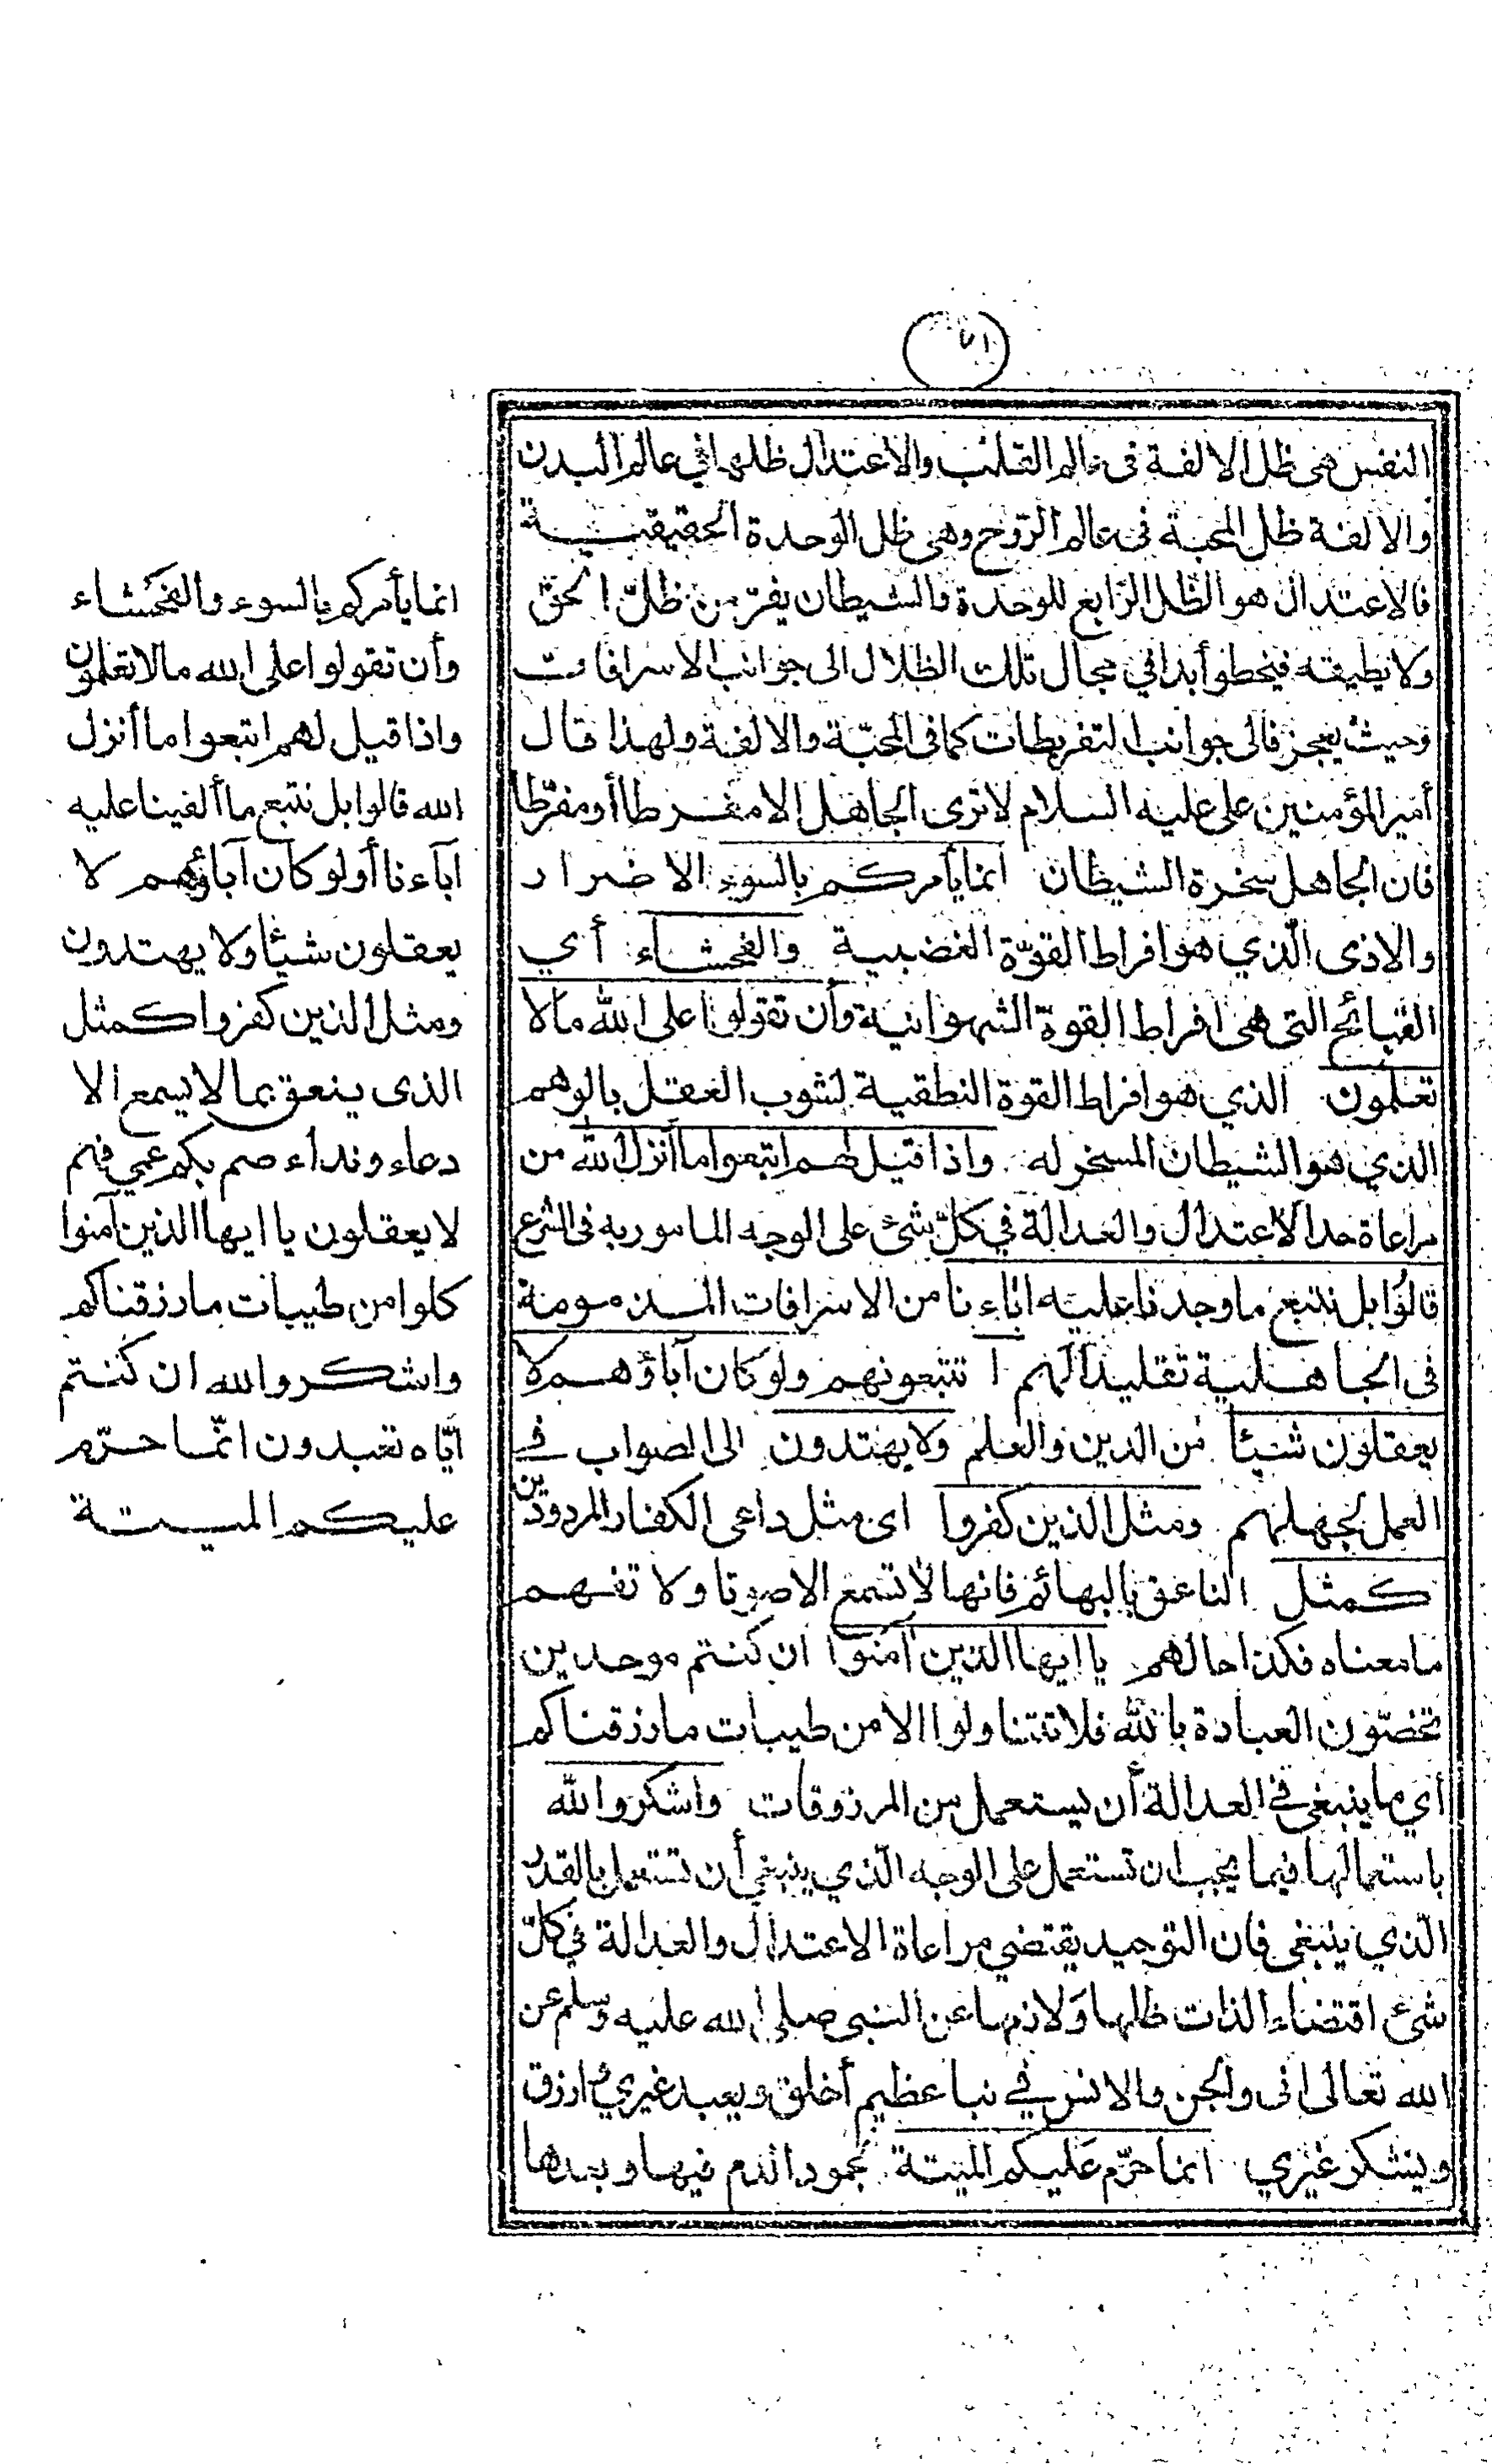 ٧١
النفس هي ظل الالفة في عالم القلب والاعتدال ظلها في عالم البدن
والالفة ظل المحبة في عالم الروح وهي ظل الوحدة الحقيقية
فالاعتدال هو الظل الرابع للوحدة والشيطان يفرّ من ظلّ الحق
ولا يطيقه فيخطو أبدا في مجال تلك الظلال الى جوانب الاسرافات
وحيث يعجز فالى جوانب التفريطات كما في المحبّة والالفة ولهذا قال
أمير المؤمنين على عليه السلام لا ترى الجاهل الا مفرطا أو مفرّطا
فان الجاهل سخرة الشيطان انما يأمركم بالسوء الاضرار
والاذى الّذي هو افراط القوّة الغضبية والفحشاء أي
القبائح التى هى افراط القوة الشهوانية وأن تقولوا على الله مالا
تعلمون الذي هو افراط القوة النطقية لشوب العقل بالوهم
الذي هو الشيطان المسخر له واذا قيل لهم اتبعوا ما أنزل الله من
مراعاة حد الاعتدال والعدالة في كلّ شئ على الوجه المامور به فى الشرع
قالوا بل نتبع ما وجدنا عليه اباءنا من الاسرافات المذمومة
فى الجاهلية تقليدا لهم ا تتبعونهم ولو كان آباؤهم لا
يعقلون شيئا من الدين والعلم ولا يهتدون الى الصواب في
العمل لجهلهم ومثل الذين كفروا اى مثل داعى الكفار المردودين
كمثل الناعق بالبهائم فانها لا تسمع الا صوتا ولا تفهم
ما معناه فكذا حالهم يا ايها الذين آمنوا ان كنتم موحدين
تخصّون العبادة بالله فلا تتناولوا الا من طيبات ما رزقناكم
أي ما ينبغى في العدالة أن يستعمل من المرزوقات واشكروا لله
باستعمالها فيما يجب ان تستعمل على الوجه الّذي ينبغي أن تستعمل بالقدر
الّذي ينبغى فان التوحيد يقتضي مراعاة الاعتدال والعدالة في كلّ
شئ اقتضاء الذات ظلها ولازمها عن النبى صلى الله عليه وسلم عن
الله تعالى انى والجن والانس في نبا عظيم أخلق ويعبد غيري وارزق
ويشكر غيري انما حرّم عليكم الميتة لجمود الدم فيها وبعدها
انما يأمركم بالسوء والفحشاء
وأن تقولوا على الله مالا تعلمون
واذا قيل لهم اتبعوا ما أنزل
الله قالوا بل نتبع ما ألفينا عليه
آباءنا أولو كان آباؤهم لا
يعقلون شيئا ولا يهتدون
ومثل الذين كفروا كمثل
الذى ينعق بما لا يسمع الا
دعاء ونداء صم بكم عمي فهم
لا يعقلون يا ايها الذين آمنوا
كلوا من طيبات ما رزقناكم
واشكروا لله ان كنتم
ايّاه تعبدون انّما حرّم
عليكم الميتة